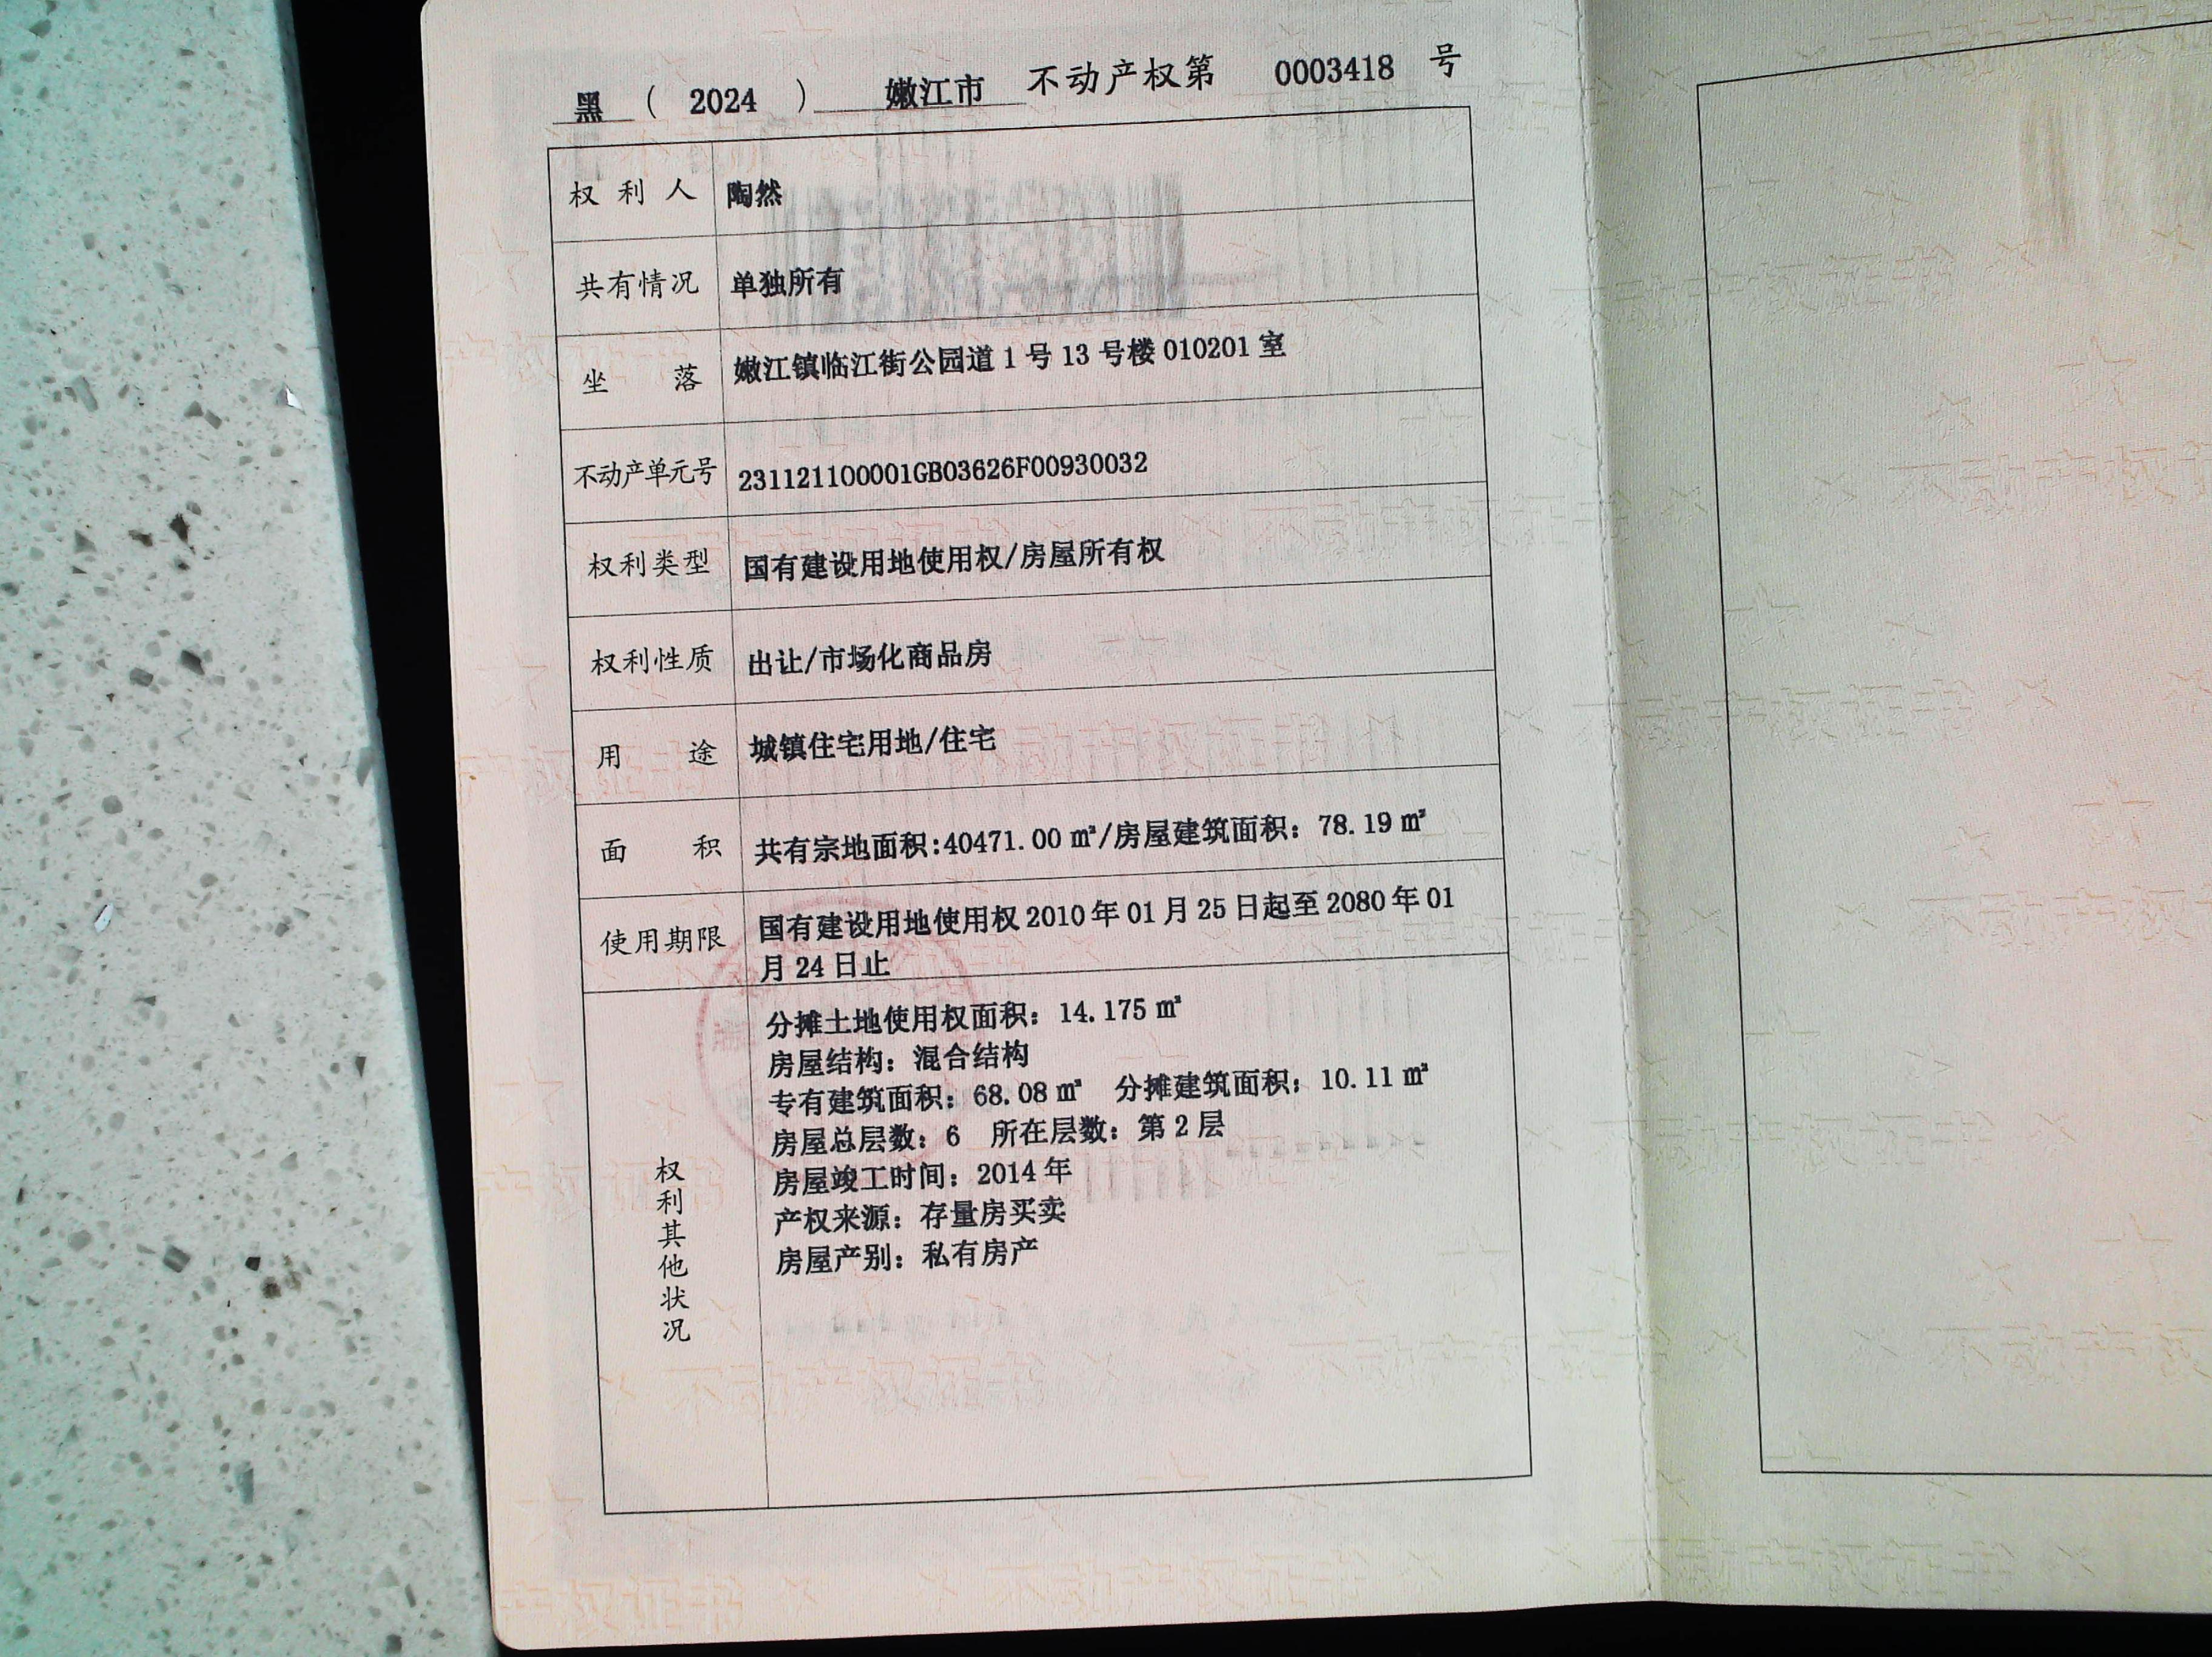 黑 ( 2024 ) 嫩江市 不动产权第 0003418 号
权利人 陶然
共有情况 单独所有
坐落 嫩江镇临江街公园道 1 号 13 号楼 010201 室
不动产单元号 231121100001GB03626F00930032
权利类型 国有建设用地使用权/房屋所有权
权利性质 出让/市场化商品房
用途 城镇住宅用地/住宅
面积 共有宗地面积:40471.00 ㎡/房屋建筑面积: 78.19 ㎡
使用期限 国有建设用地使用权 2010 年 01 月 25 日起至 2080 年 01
月 24 日止
权利其他状况
分摊土地使用权面积: 14.175 ㎡
房屋结构: 混合结构
专有建筑面积: 68.08 ㎡ 分摊建筑面积: 10.11 ㎡
房屋总层数: 6 所在层数: 第 2 层
房屋竣工时间: 2014 年
产权来源: 存量房买卖
房屋产别: 私有房产